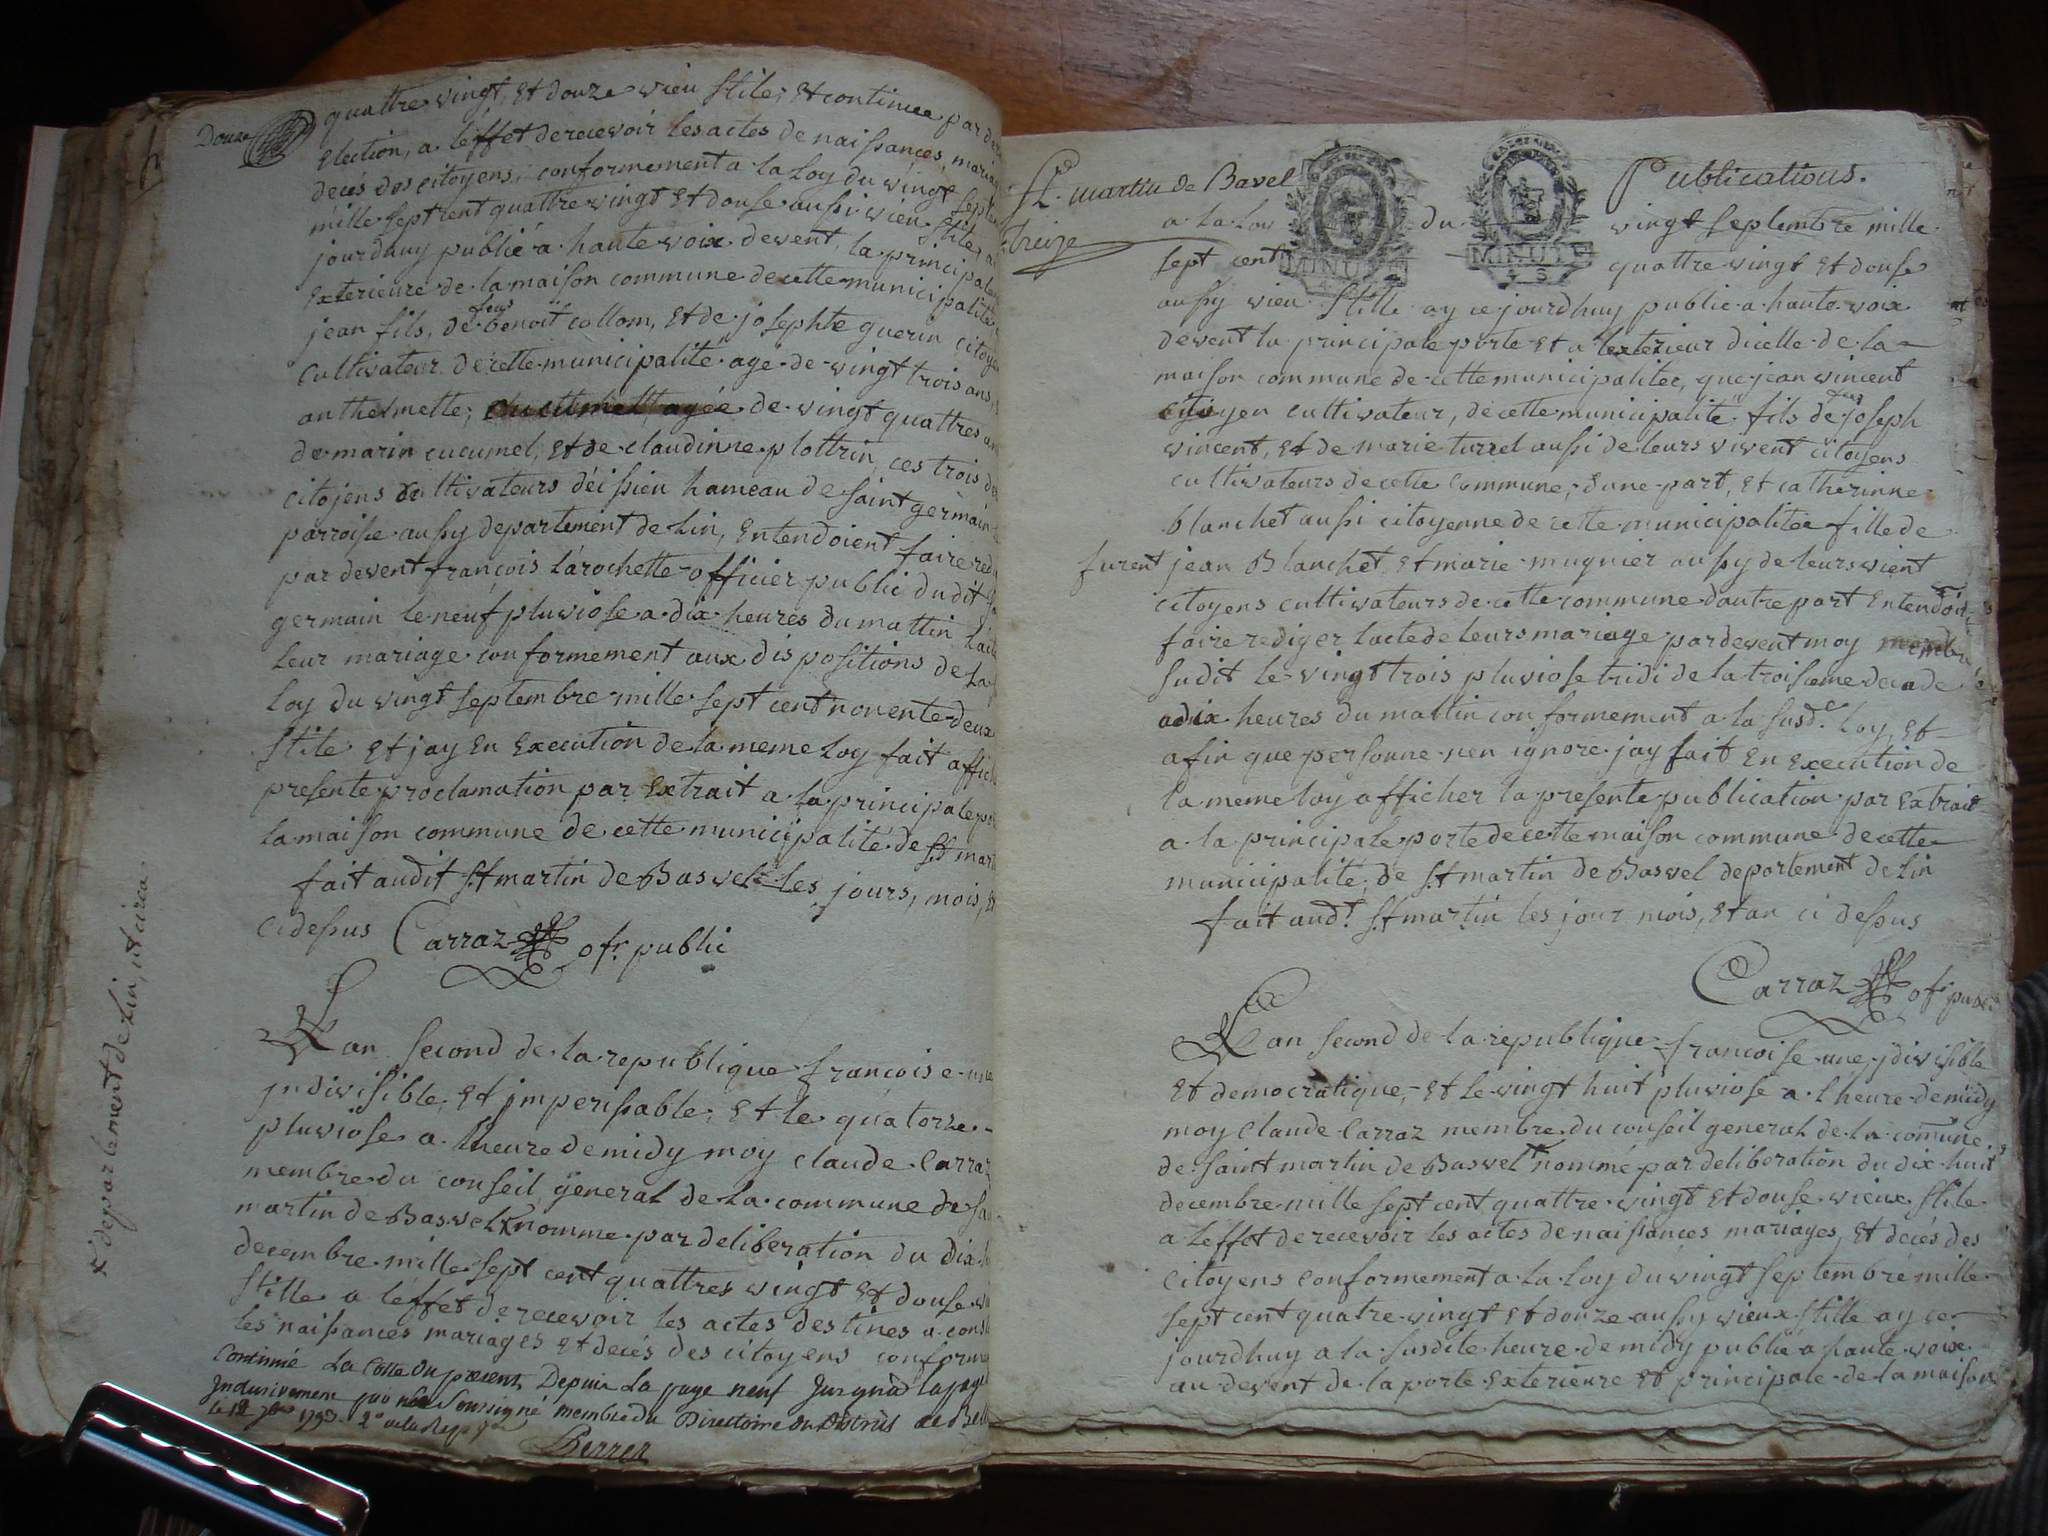 Douze
quattre vingt, et douze vieu stile; et continuee par
Election, a l'effet de recevoir les actes de naissances, mariag
decés des citoyens, conformement a la Loy du vingt septem
mille sept cent quattre vingt et douse aussi vieu stile, a
jourdhuy publié a haute voix devent, la principale
Exterieure de la maison commune de cette municipalité
jean fils, de feu benoit collom, et de josephte guerin citoye
Cultivateur de cette municipalité age de vingt trois ans,
anthelmette; de vingt quattres an
de marin cucumel, et de claudinne plottrin, ces trois de
citojens cultivateurs déissieu hameau de saint germain
parroisse aussy departement de Lin, Entendoient faire red
par devent françois Larochette officier public dudit
germain le neuf pluviose a dix heures du mattin Lact
Leur mariage conformement aux dispositions de La
Loy du vingt septembre mille sept cent nonente deux
stile et jay En Execution de la meme Loy fait affich
presente proclamation par Extrait a la principale po
la maison commune de cette municipalité de St mart
fait audit St martin de Basvel les jours, mois, et
cidessus Carraz ofr. public
Lan second de la republique françoise une
jndivisible, et jmperissable, et le quatorze
pluviose a lheure de midy moy claude Carraz
membre du conseil general de la commune de sa
martin de Basvel x nomme par deliberation du dix
decembre mille sept cent quattres vingt et douse v
stille a leffet de recevoir les actes destines a cons
les naissances mariages et decés des citoyens conform
Continué La Cotte Du present Depuis La page neuf Jusqua la page
Inclusivement par nous Soussigné membre du Directoire du District de Bell
le 12 1793 2e de la Rep
x departement de Lin,
St. martin de Bavel
Publications.
treize
a la Loy du vingt septembre mille
MINUTE
MINUTE
sept cent quattre vingt et douse
aussy vieu stille ay cejourdhuy publié a haute voix
devent la principale porte et a lexterieur dicelle de la
maison commune de cette municipalitée, que jean vincent
citoyen cultivateur, de cette municipalité fils de feu joseph
vincent, et de marie turrel aussi de leurs vivent citoyens
cultivateurs de cette commune, dune part, et catherinne
blanchet aussi citoyenne de cette municipalitée fille de
furent jean Blanchet et marie mugnier aussy de leurs vient
citoyens cultivateurs de cette commune dautre part Entendoit
faire rediger lacte de leurs mariage par devent moy membre
sudit le vingt trois pluviose tridi de la troisieme decade
a dix heures du mattin conformement a la susde. Loy, et
afin que personne nen ignore jay fait En Execution de
la meme loy afficher la presente publication par Extrait
a la principale porte de cette maison commune de cette
municipalité, de St martin de Basvel departement de Lin
fait audt. St martin les jour mois, et an ci dessus
Carraz ofr public
Lan second de la republique francoise une jdivisible
et democratique, et le vingt huit pluviose a lheure de midy
moy Claude Carraz membre du conseil general de la comune
de saint martin de Basvel nommé par deliberation du dix huit
decembre mille sept cent quattre vingt et douse vieux stile
a leffet de recevoir les actes de naissances mariages, et decés des
citoyens conformement a la loy du vingt septembre mille
sept cent quatre vingt et douze aussy vieux stille ay ce
jourdhuy a la susdite heure de midy publié a haute voix
au devent de la porte exterieure et principale de la maison